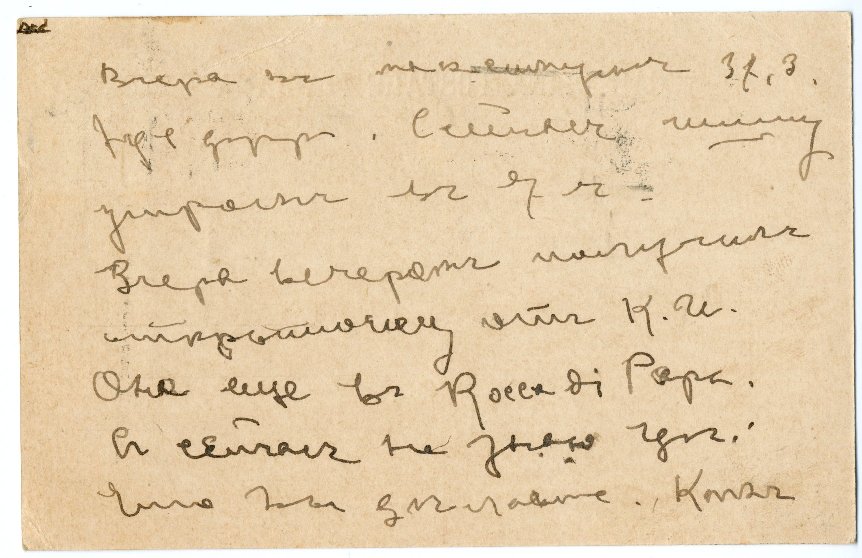 Вчера въ 37,3.
Сейчасъ пишу
утромъ въ
Вчера вечеромъ получилъ
открыточку отъ К. И.
Она еще въ Rocca di Papa.
А сейчасъ не знаю гдѣ.
Что Вы дѣлаете. Конст